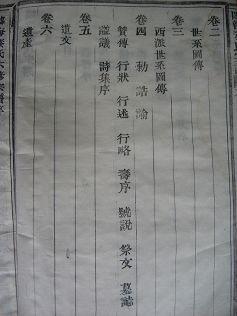 卷二
世系圖傳
卷三
西派世系圖傳
卷四 勅誥諭
贊傳 行狀 行述 行略 壽序 號説 祭文 墓誌
謚議 詩集序
卷五
遺文
卷六
遺産